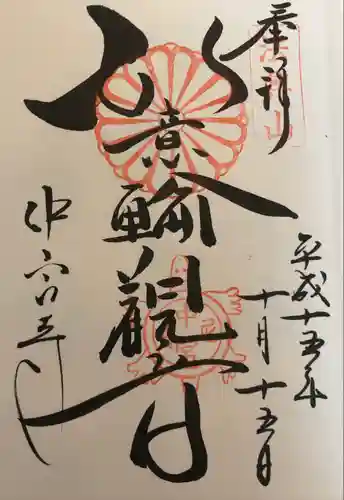 奉拝
平成十五年
十月十五日
如意輪觀音
中宮寺